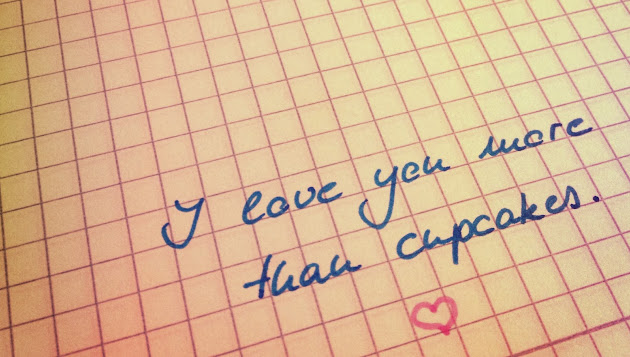 I love you more
than cupcakes.